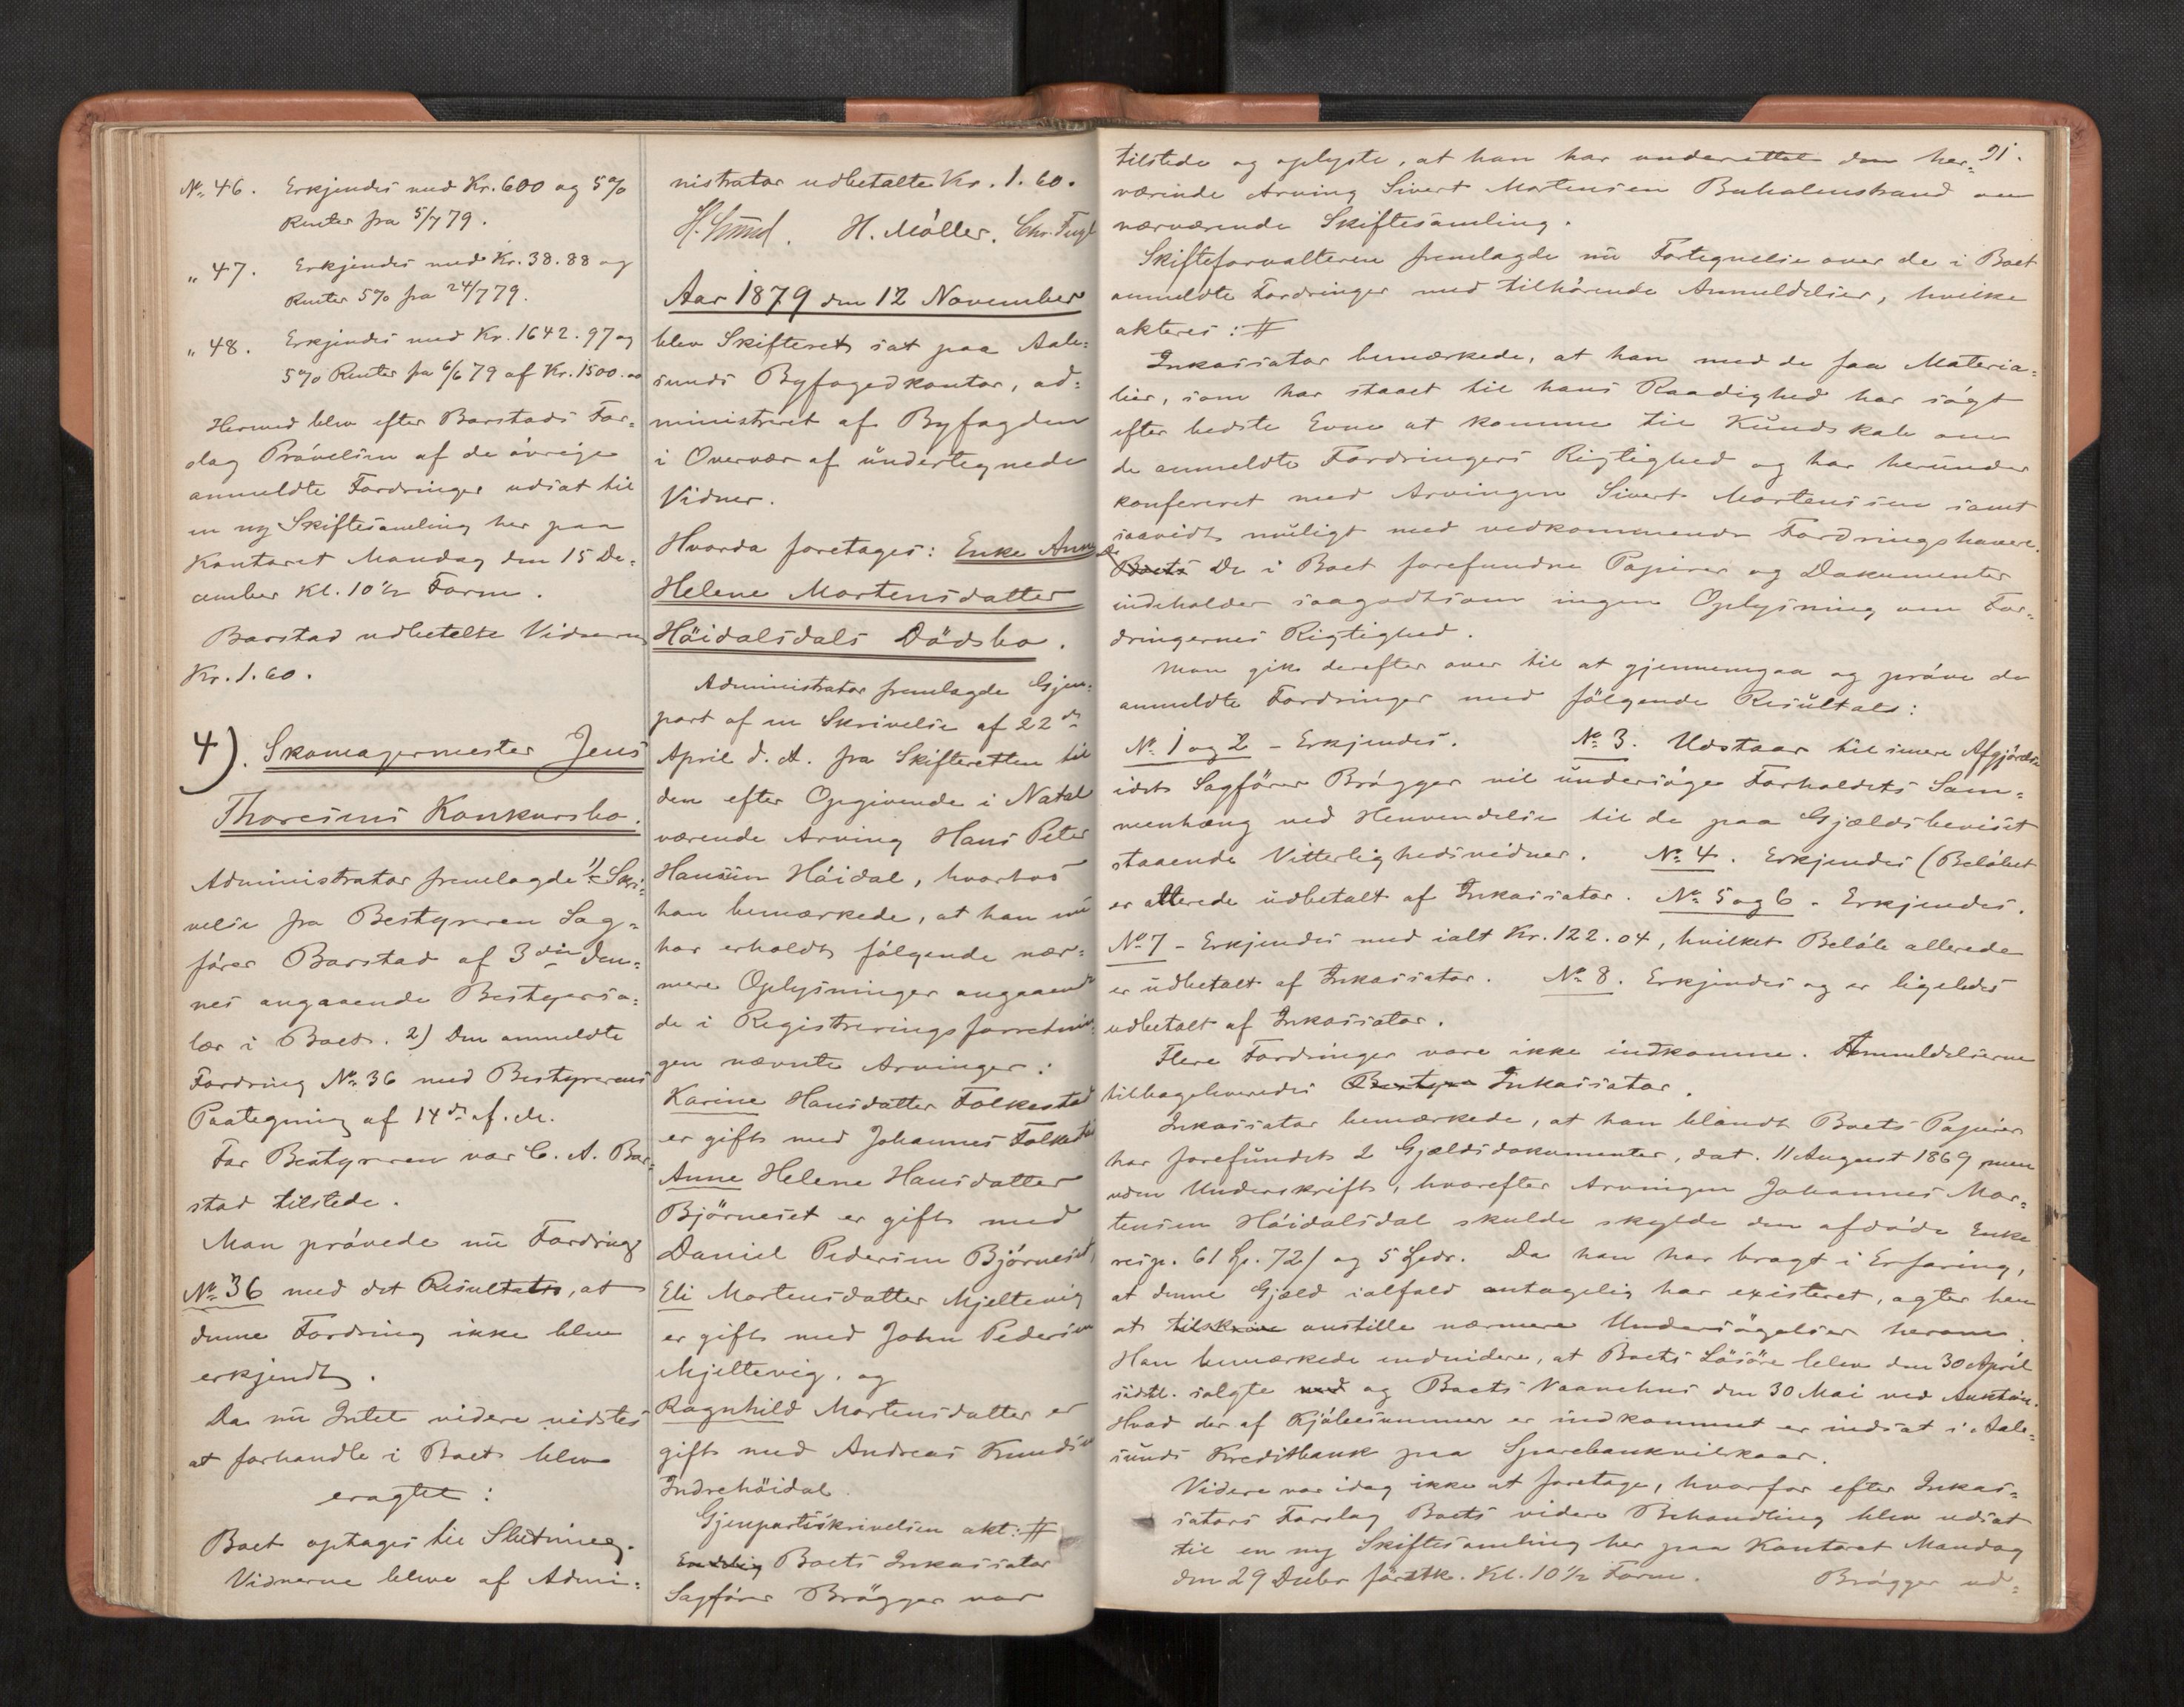 No. 46. Erkjendes med Kr. 600 og 5%
Renter fra 5/7 79.
" 47. Erkjendes med Kr. 38.88 og
Renter 5% fra 24/7 79.
" 48. Erkjendes med Kr. 1642.97 og
5% Renter fra 6/6 79 af Kr. 1500.00
Hermed blev efter Barstads For=
slag Prövelsen af de övrige
anmeldte Fordringer udsat til
en ny Skiftesamling her paa
Kontoret Mandag den 15 De=
cember Kl. 10½ Form.
Barstad udbetalte Vidnerne
Kr. 1.60.
4). Skomagermester Jens
Thoresens Konkursbo.
Administrator fremlagde 1) Skri=
velse fra Bestyreren Sag=
förer Barstad af 3die den=
nes angaaende Bestyrersa=
lær i Boet. 2) Den anmeldte
Fordring No. 36 med Bestyrerens
Paategning af 14de f. M.
For Bestyreren var C. A. Bar=
stad tilstede.
Man prövede nu Fordring
No. 36 med det Resultat, at
denne Fordring ikke blev
erkjendt.
Da nu Intet videre vidstes
at forhandle i Boet blev
eragtet:
Boet optages til Slutning.
Vidnerne bleve af Admi=
nistrator udbetalte Kr. 1.60.
H. Møller. Chr.
Aar 1879 den 12 November
blev Skifteret sat paa Aale=
sunds Byfogedkontor, ad=
ministreret af Byfogden
i Overvær af undertegnede
Vidner.
Hvorda foretages: Enke Anne
Helene Mortensdatter
Höidalsdals Dödsbo.
Administrator fremlagde Gjen=
part af en Skrivelse af 22de
April d. A. fra Skifteretten til
den efter Opgivende i Natal
værende Arving Hans Peter
Hansen Höidal, hvorhos
han bemærkede, at han nu
har erholdt fölgende nær=
mere Oplysninger angaaende
de i Registreringsforretnin=
gen nævnte Arvinger:
Karine Hansdatter Folkestad
er gift med Johannes Folkestad
Anne Helene Hansdatter
Björneset er gift med
Daniel Pedersen Björneset,
Eli Mortensdatter Mjeltevig
er gift med John Pedersen
Mjeltevig, og
Ragnhild Mortensdatter er
gift med Andreas Knudsen
Indrehöidal.
Gjenpartsskrivelsen akt: #
Endelig Boets Inkassator
Sagförer Brögger var
91.
tilstede og oplyste, at han har underettet den her=
værende Arving Sivert Mortensen Buholmstrand om
nærværende Skiftesamling.
Skifteforvalteren fremlagde nu Fortegnelse over de i Boet
anmeldte Fordringer med tilhörende Anmeldelser, hvilke
akteres: #
Inkassator bemærkede, at han med de faa Materia=
lier, som har staaet til hans Raadighed har sögt
efter bedste Evne at komme til Kundskab om
de anmeldte Fordringers Rigtighed og har herunder
konfereret med Arvingen Sivert Mortenssen samt
saavidt muligt med vedkommende Fordringshavere.
Boets De i Boet forefundne Papirer og Dokumenter
indeholder saagodtsom ingen Oplysning om For=
dringernes Rigtighed.
Man gik derefter over til at gjennemgaa og pröve de
anmeldte Fordringer med fölgende Resultat:
No. 1 og 2 – Erkjendes. No. 3. Udstaar til senere Afgjörelse
idet Sagförer Brögger vil undersöge Forholdets Sam=
menhæng ved Henvendelse til de paa Gjældsbeviset
staaende Vitterlighedsvidner. No. 4. Erkjendes (Belöbet
er allerede udbetalt af Inkassator. No. 5 og 6 – Erkjendes.
No. 7 – Erkjendes med ialt Kr. 122.04, hvilket Belöb allerede
er udbetalt af Inkassator. No. 8. Erkjendes og er ligeledes
udbetalt af Inkassator.
Flere Fordringer vare ikke indkomne. Anmeldelserne
tilbageleveredes Bestyre Inkassator.
Inkassator bemærkede, at han blandt Boets Papirer
har forefundet 2 Gjældsdokumenter, dat. 11 August 1869 men
uden Underskrift, hvorefter Arvingen Johannes Mor=
tensen Höidalsdal skulde skylde den afdöde Enke
resp. 61 Sp. 72 ß og 5 Spdr. Da han har bragt i Erfaring,
at denne Gjæld ialfald antagelig har existeret, agter han
at tilskrive anstille nærmere Undersögelser herom.
Han bemærkede endvidere, at Boets Lösöre blev den 30 April
sidstl. solgte ved og Boets Vaanehus den 30 Mai ved Auktion.
Hvad der af Kjöbesummer er indkommet er indsat i Aale=
sunds Kreditbank paa Sparebankvilkaar.
Videre var idag ikke at foretage, hvorfor efter Inkas=
sators Forslag Boets videre Behandling blev udsat
til en ny Skiftesamling her paa Kontoret Mandag
den 29 Decbr förstk. Kl. 10½ Form. Brögger ud=